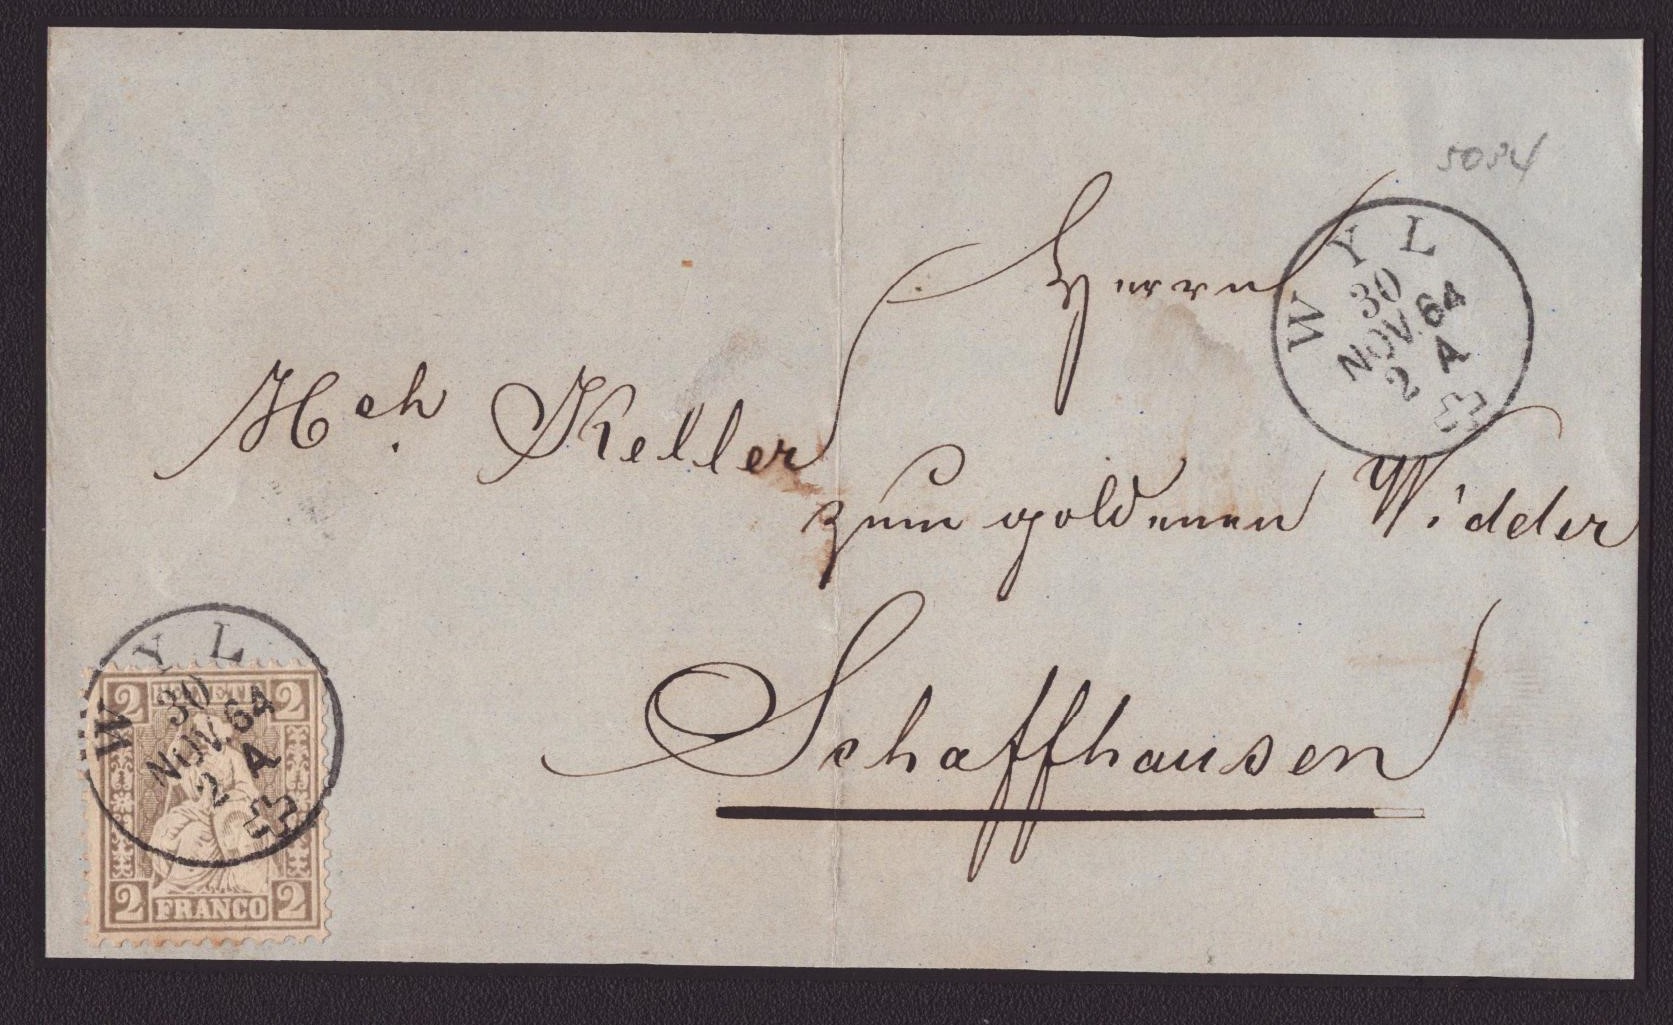 5034
Herrn
Hch Keller
zum goldenen Widder
Schaffhausen
WYL
30
NOV. 64
2 A
WYL
30
NOV. 64
2 A
2 HELVETIA 2
2 FRANCO 2